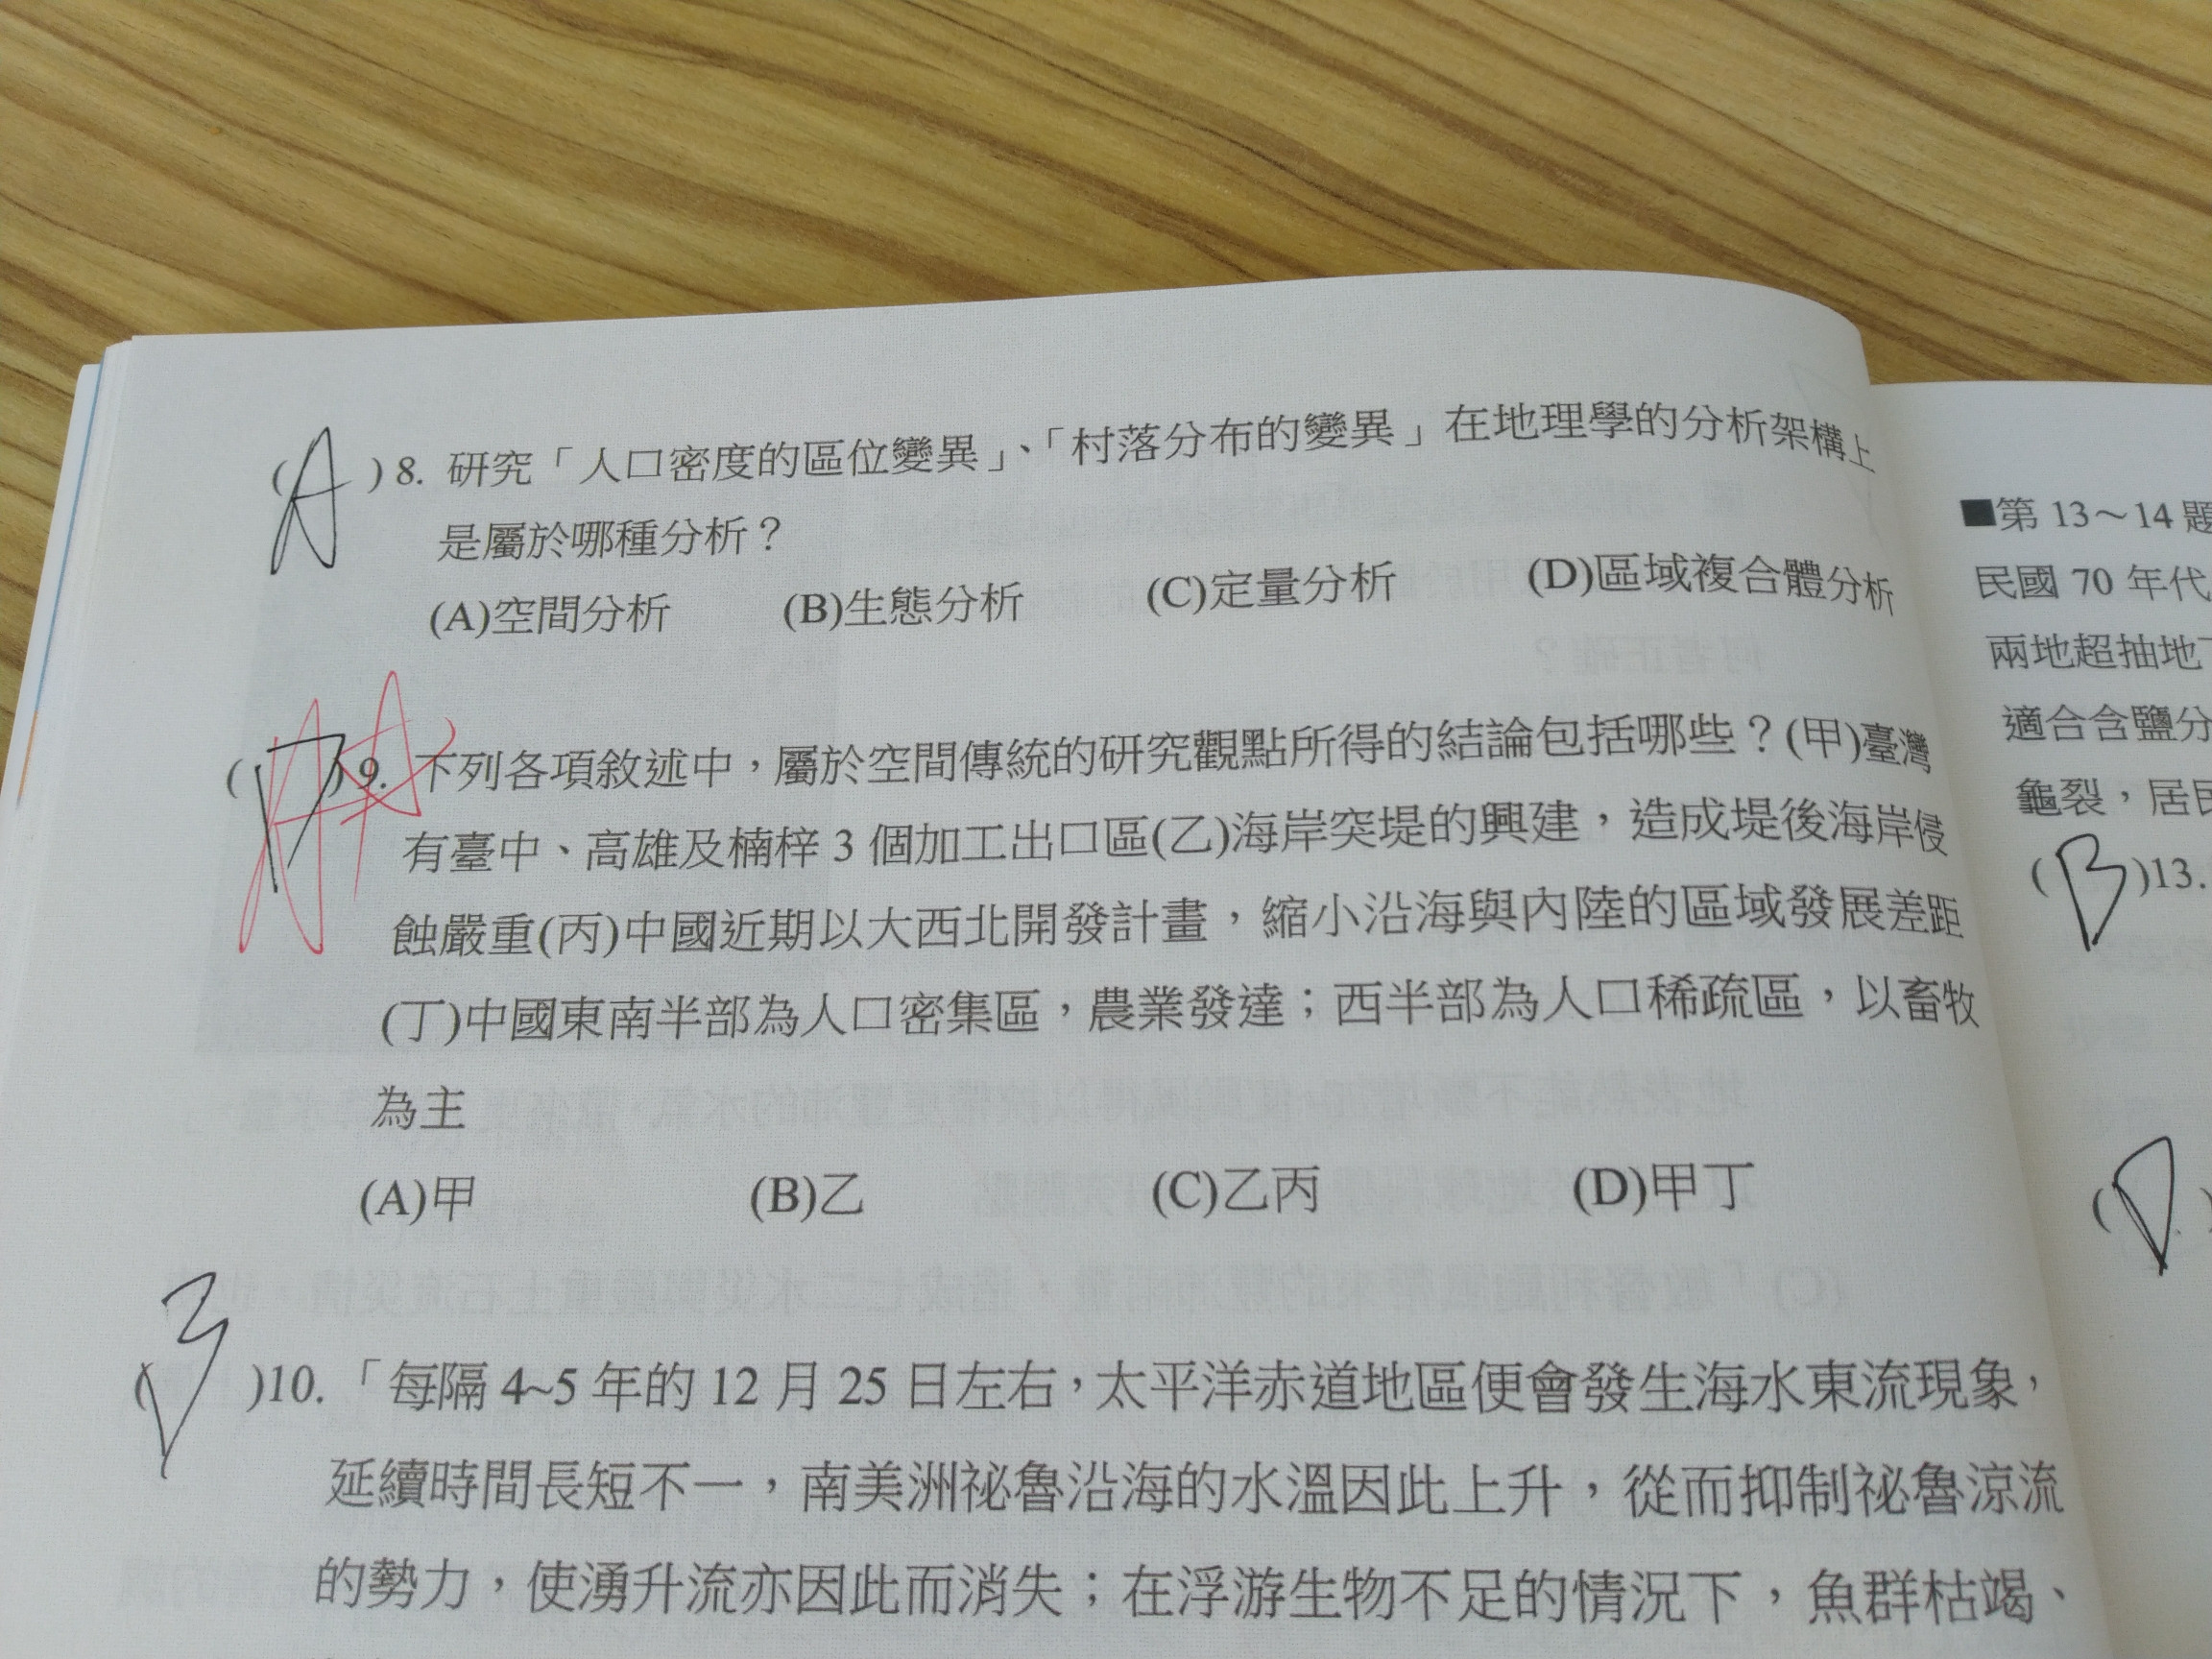 (A)8. 研究「人口密度的區位變異」、「村落分布的變異」在地理學的分析架構上
是屬於哪種分析？
(A)空間分析 (B)生態分析 (C)定量分析 (D)區域複合體分析
(D)9. 下列各項敘述中，屬於空間傳統的研究觀點所得的結論包括哪些？(甲)臺灣
A
有臺中、高雄及楠梓 3 個加工出口區(乙)海岸突堤的興建，造成堤後海岸侵
蝕嚴重(丙)中國近期以大西北開發計畫，縮小沿海與內陸的區域發展差距
(丁)中國東南半部為人口密集區，農業發達；西半部為人口稀疏區，以畜牧
為主
(A)甲 (B)乙 (C)乙丙 (D)甲丁
(B)10. 「每隔 4~5 年的 12 月 25 日左右，太平洋赤道地區便會發生海水東流現象，
延續時間長短不一，南美洲祕魯沿海的水溫因此上升，從而抑制祕魯涼流
的勢力，使湧升流亦因此而消失；在浮游生物不足的情況下，魚群枯竭、
■第 13～14 題
民國 70 年代
兩地超抽地
適合含鹽分
龜裂，居民
(B)13.
(D)